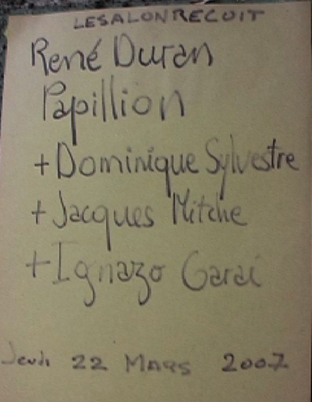 LESALONRECOIT
René Duran
Papillion
+Dominique Sylvestre
+Jacques Mitche
+Ignazo Garai
Jeudi 22 MARS 2007